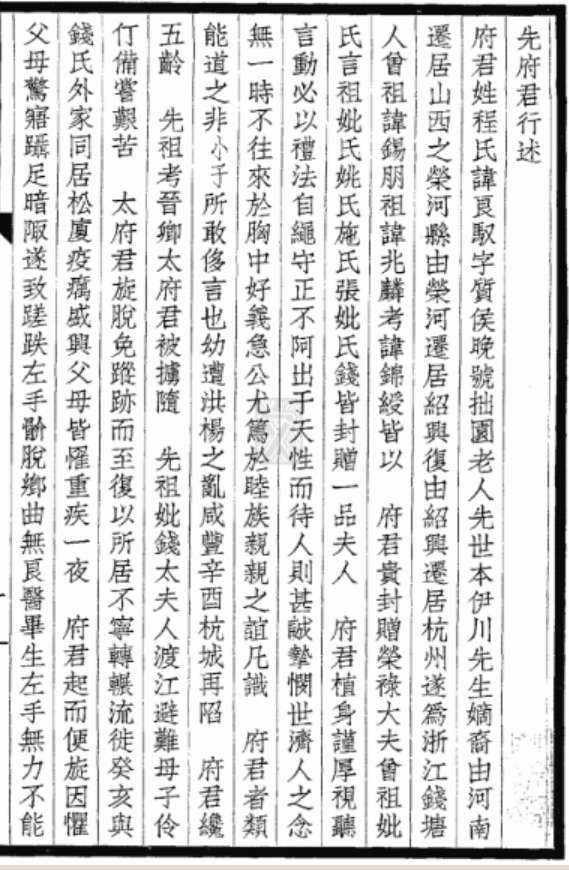 先府君行述
府君姓程氏諱良馭字質侯晚號拙園老人先世本伊川先生嫡裔由河南
遷居山西之榮河縣由榮河遷居紹興復由紹興遷居杭州遂為浙江錢塘
人曾祖諱錫朋祖諱兆麟考諱錦綬皆以　府君貴封贈榮祿大夫曾祖妣
氏言祖妣氏姚氏施氏張妣氏錢皆封贈一品夫人　府君植身謹厚視聽
言動必以禮法自繩守正不阿出于天性而待人則甚誠摯憫世濟人之念
無一時不往來於胸中好義急公尤篤於睦族親親之誼凡識　府君者類
能道之非小子所敢侈言也幼遭洪楊之亂咸豐辛酉杭城再陷　府君纔
五齡　先祖考晉卿太府君被擄隨　先祖妣錢太夫人渡江避難母子伶
仃備嘗艱苦　太府君旋脫免蹤跡而至復以所居不寧轉輾流徙癸亥與
錢氏外家同居松廈疫癘盛興父母皆懼重疾一夜　府君起而便旋因懼
父母驚寤躡足暗陬遂致蹉跌左手骱脫鄉曲無良醫畢生左手無力不能